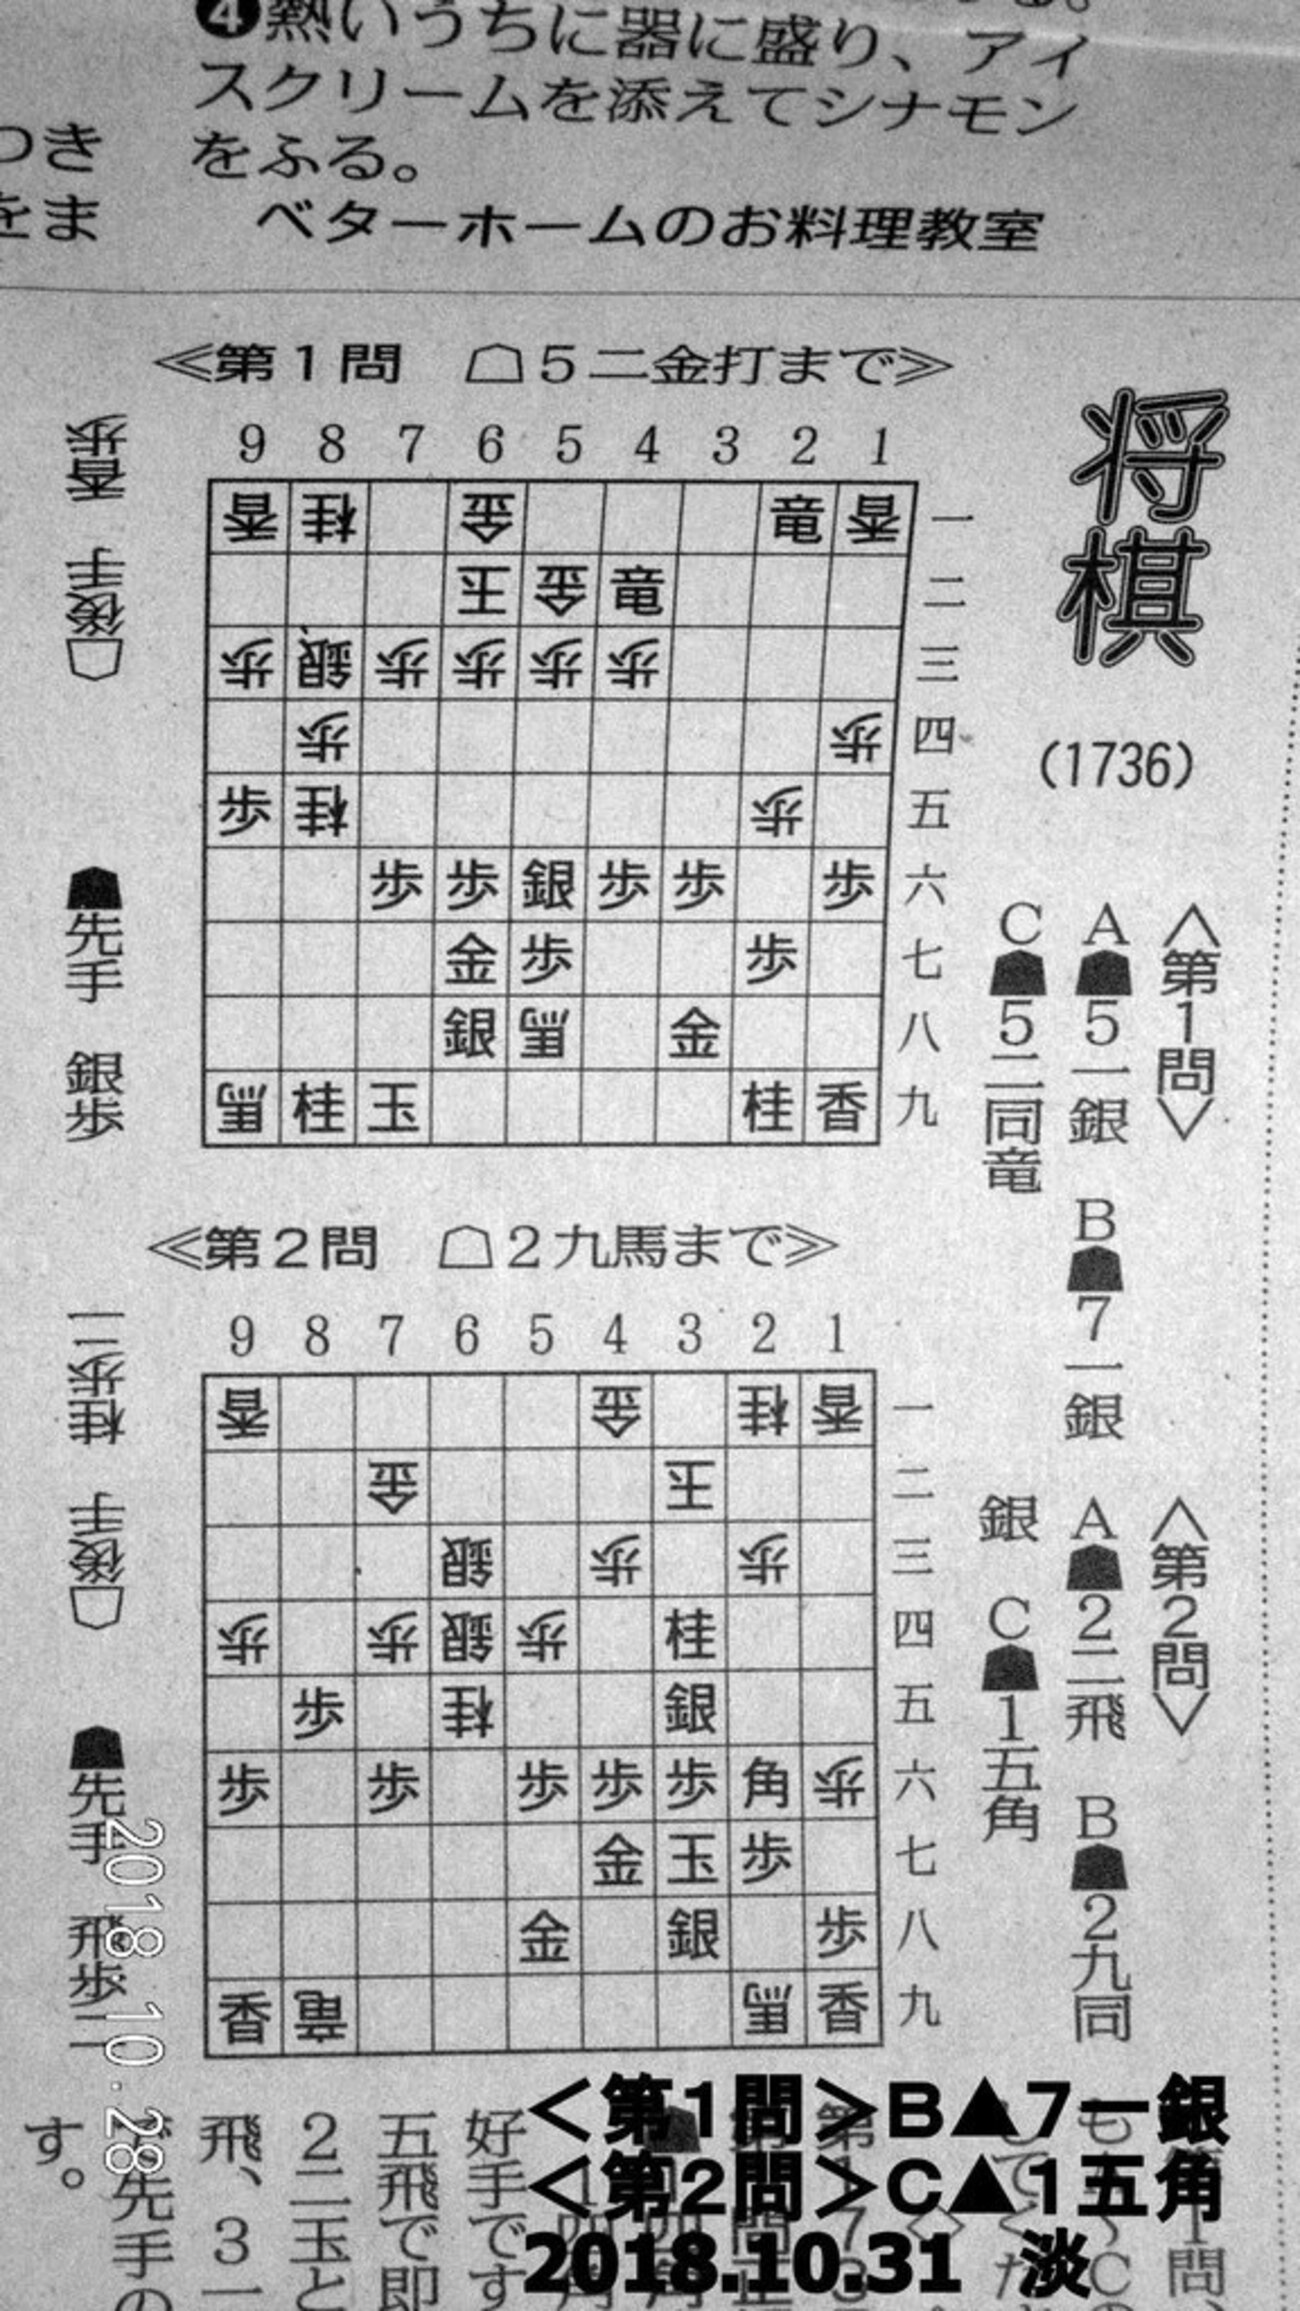 ❹熱いうちに器に盛り、アイ
スクリームを添えてシナモン
をふる。
ベターホームのお料理教室
つき
をま
将棋
(1736)
≪第1問 ☖5二金打まで≫
9 8 7 6 5 4 3 2 1
香 桂 金 竜 香 一
王 金 竜 二
歩 銀 歩 歩 歩 歩 三
歩 歩 四
歩 桂 歩 五
歩 歩 銀 歩 歩 歩 六
金 歩 歩 七
銀 馬 金 八
馬 桂 玉 桂 香 九
☖後手 香歩
☗先手 銀歩
〈第1問〉
A☗5一銀 B☗7一銀
C☗5二同竜
≪第2問 ☖2九馬まで≫
9 8 7 6 5 4 3 2 1
香 金 桂 香 一
金 王 二
銀 歩 歩 三
歩 歩 銀 歩 桂 四
歩 桂 銀 五
歩 歩 歩 歩 歩 角 歩 六
金 玉 歩 七
金 銀 歩 八
香 竜 馬 香 九
☖後手 桂歩二
☗先手 飛歩二
〈第2問〉
A☗2二飛 B☗2九同
銀 C☗1五角
好手です
五飛で即
2二玉と
飛、3一
先手の
す。
2018.10.28
＜第1問＞B▲7一銀
＜第2問＞C▲1五角
2018.10.31 淡